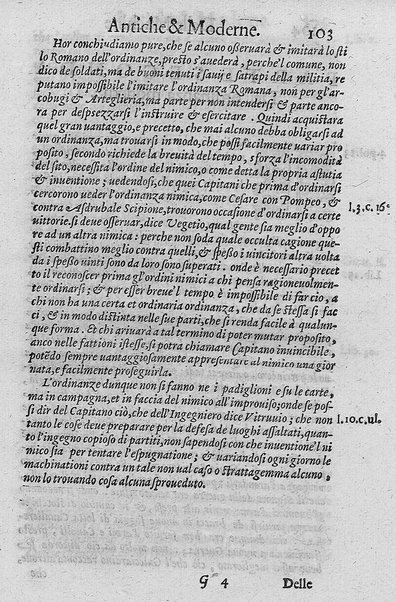 Antiche & Moderne. 103
Hor conchiudiamo pure, che se alcuno osseruarà & imitarà lo sti
lo Romano dell'ordinanze, presto s'auederà, perche'l comune, non
dico de soldati, ma de buoni tenuti i sauij e satrapi della militia, re
putano impossibile l'imitare l'ordinanza Romana, non per gl'ar-
cobugi & Arteglieria, ma parte per non intendersi & parte anco-
ra per despsezzarsi l'instruire & esercitare. Quindi acquistarà
quel gran uantaggio, e precetto, che mai alcuno debba obligarsi ad
un ordinanza, ma trouarsi in modo, che possi facilmente uariar pro
posito, secondo richiede la breuità del tempo, sforza l'incomodità
del sito, necessita l'ordine del nimico, o come detta la propria astutia
& inuentione; uedendosi, che quei Capitani che prima d'ordinarsi
cercorono ueder l'ordinanza nimica, come Cesare con Pompeo, &
contra Asdrubale Scipione, trouorono occasione d'ordinarsi a certe
uittorie. si deue osseruar, dice Vegetio, qual gente sia meglio d'oppo
re ad un altra nimica: perche non soda quale occulta cagione que-
sti combattino meglio contra quelli, & spesso i uincitori altra uolta
da i spesso uinti sono da loro sono superati. onde è necessario precet
to il reconoscer prima gl'ordini nimici a chi pensa ragioneuolmen-
te ordinarsi; & per esser breue'l tempo è impossibile di farcio, a
chi non ha una certa et ordinaria ordinanza, che da se stessa si fac
ci, & in modo distinta nelle sue parti, che si renda facile à qualun-
que forma. Et chi ariuarà a tal termino di poter mutar proposito,
anco nelle fattioni istesse, si potrà chiamare Capitano inuincibile,
potēdo sempre uantaggiosamente appresentare al nimico una gior
nata, e facilmente proseguirla.
l,3,c,16.
L'ordinanze dunque non si fanno ne i padiglioni e su le carte,
ma in campagna, et in faccia del nimico all'improuiso; onde se pos-
si dir del Capitano ciò, che dell'Ingegniero dice Vitruuio; che non
tanto le cose deue preparare per la defesa de luoghi assaltati, quan-
to l'ingegno copioso di partiti, non sapendosi con che inuentione'l ni
mico sia per tentare l'espugnatione; & uariandosi ogni giorno le
machinationi contra un tale non ual caso o Strattagemma alcuno,
non lo trouando cosa alcuna sproueduto.
l.10.c,ul.
G 4 Delle